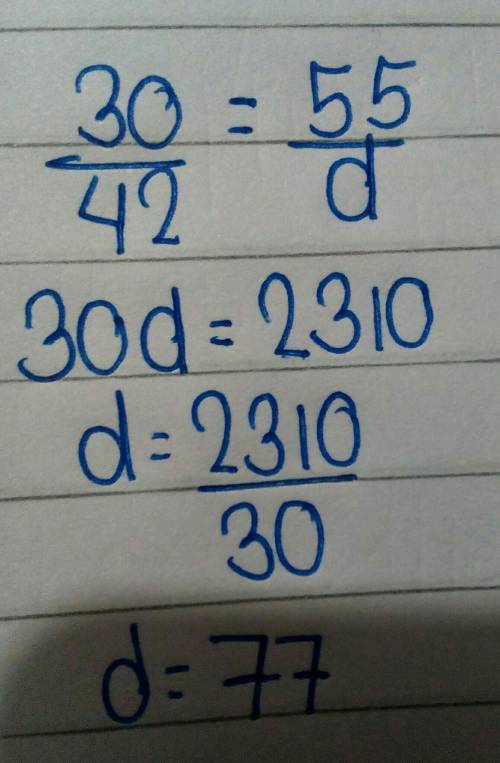 30/42 = 55/d
30d = 2310
d = 2310/30
d = 77